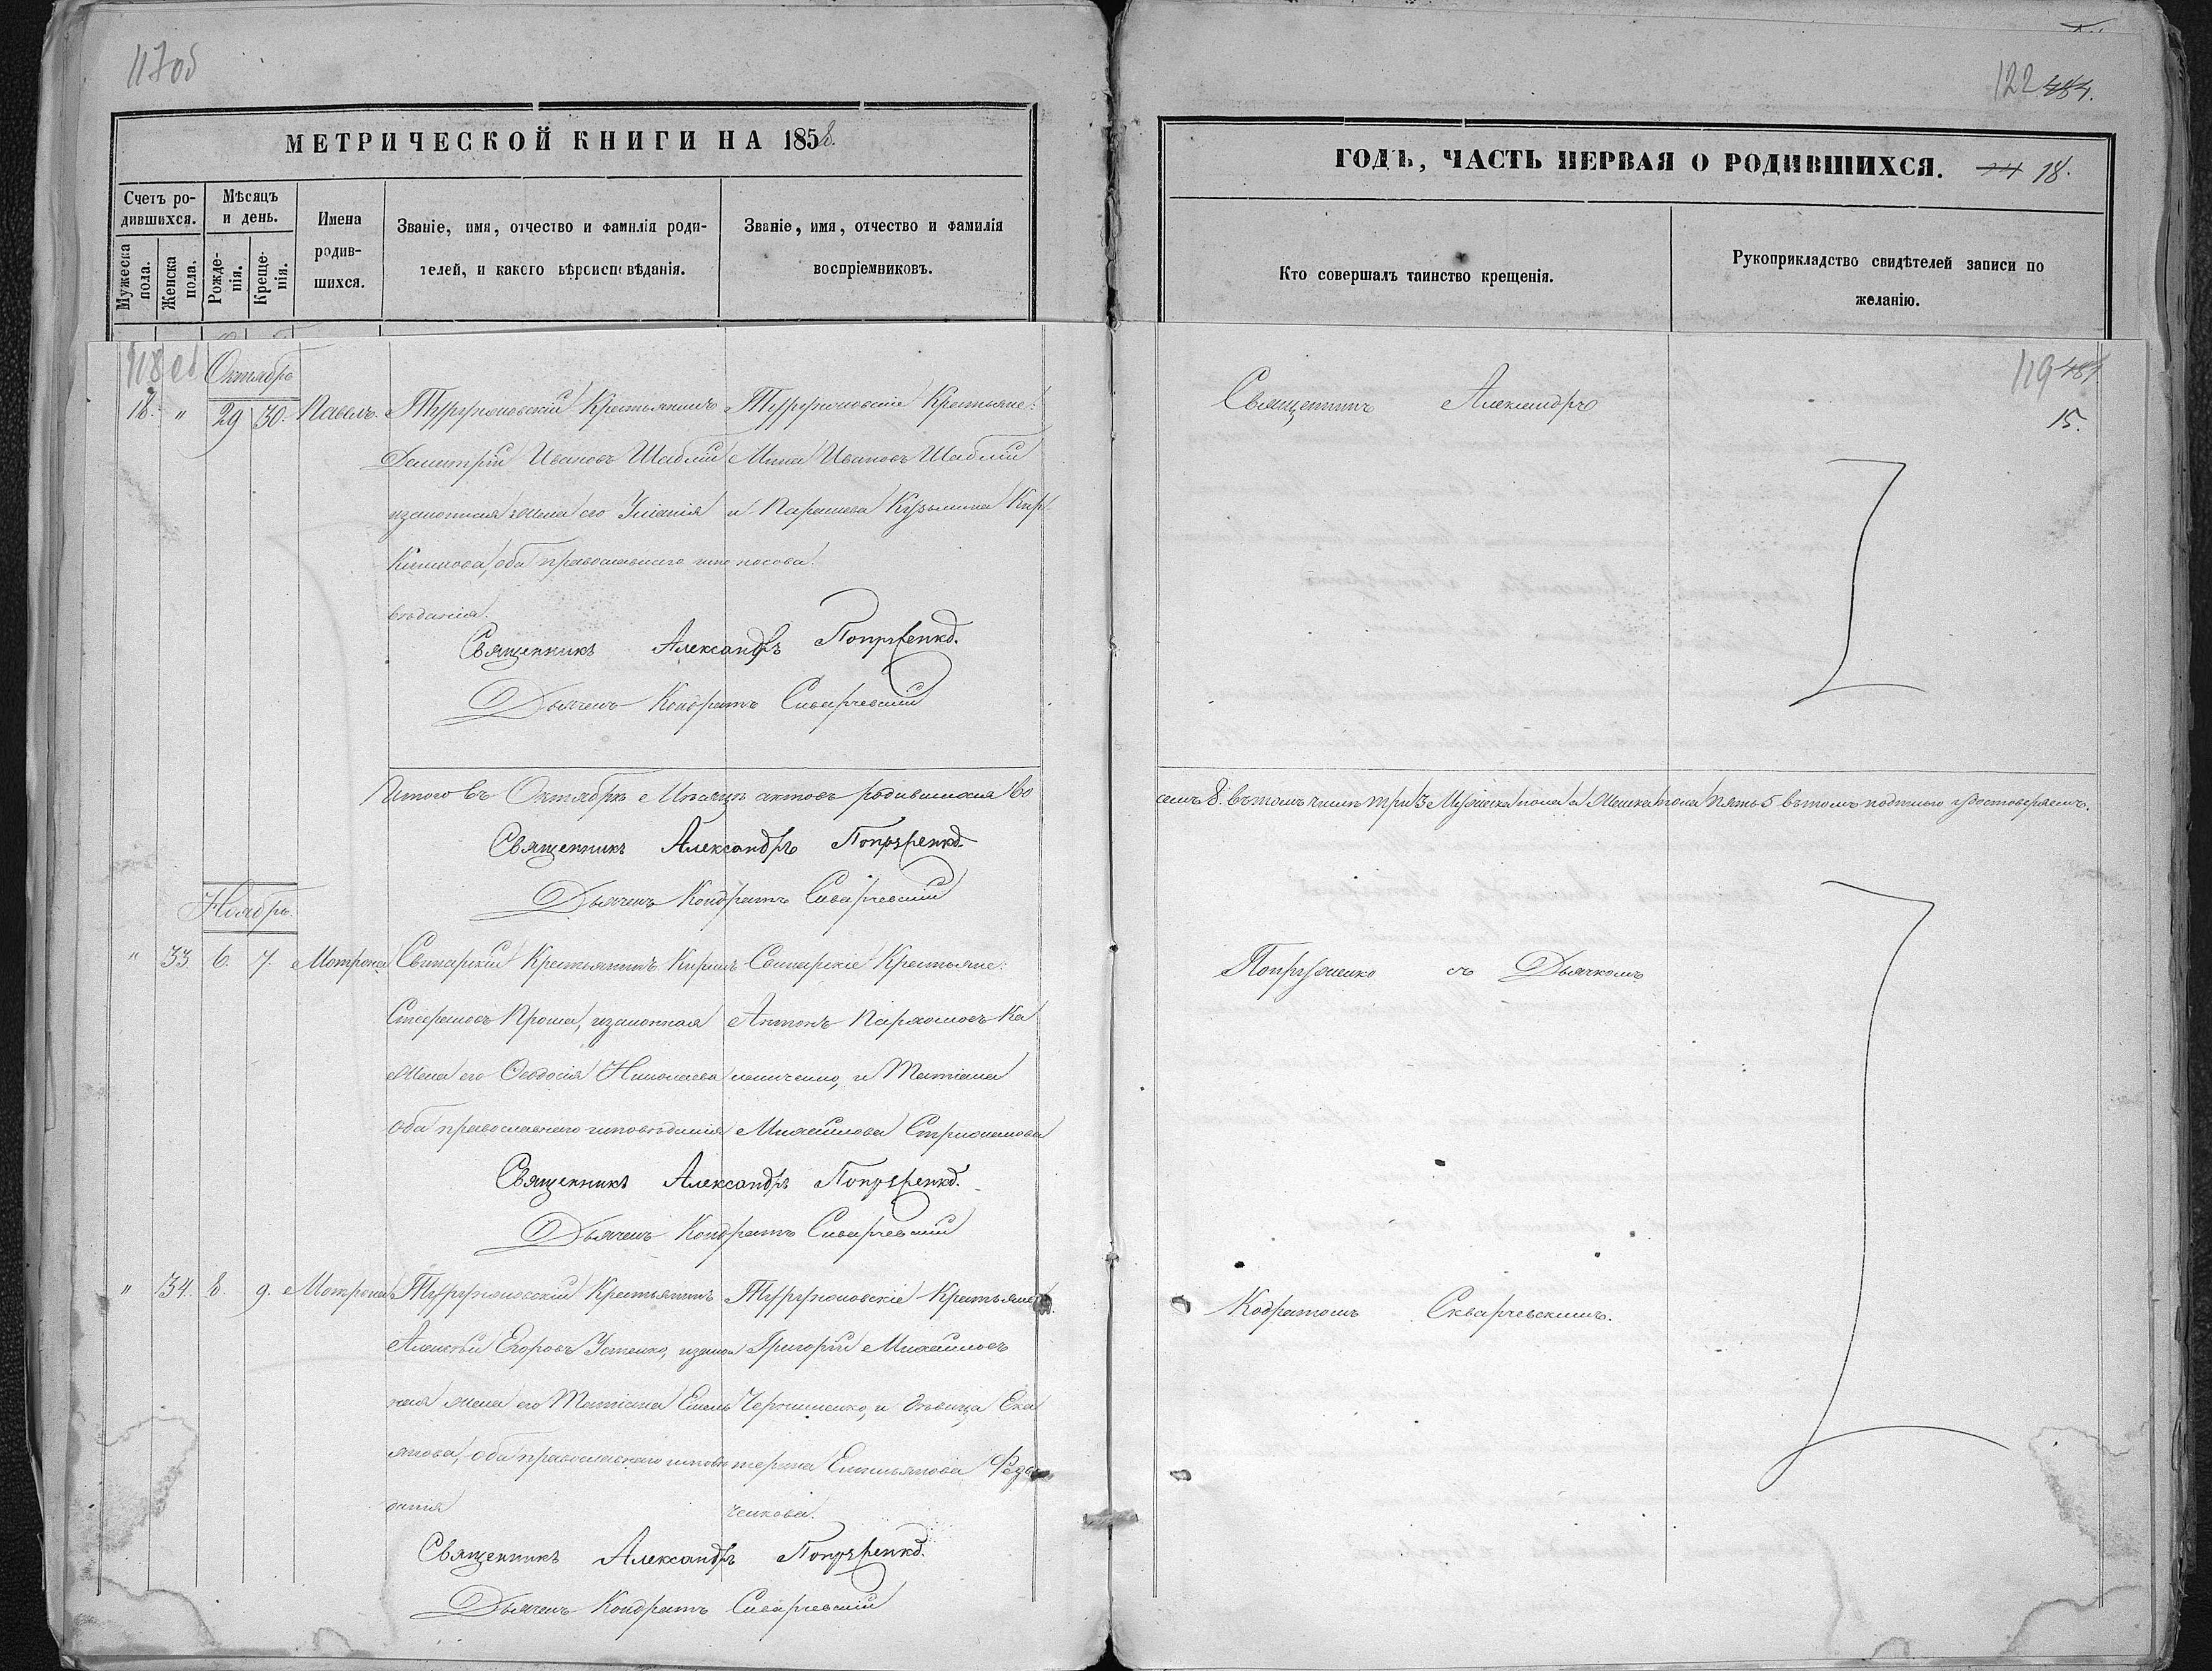 117об
МЕТРИЧЕСКОЙ КНИГИ НА 1858.
Счетъ родившихся.
Мѣсяцъ и день.
Мужеска пола.
Женска пола.
Рожденія.
Крещенія.
Имена родившихся.
Званіе, имя, отчество и фамилія родителей, и какого вѣроисповѣданія.
Званіе, имя, отчество и фамилія воспріемниковъ.
118об
Октябрь
18. " 29 30. Павелъ.
Крестьянинъ
Димитрій Ивановъ Шаблій
и законная жена его Уліанія
оба православнаго испо
вѣданія.
Крестьяне:
Мина Ивановъ Шаблій
и Параскева Кузьмина Кир
носова.
Священникъ Александръ Попруженко.
Дьячекъ Кондратъ Скварчевскій
Итого въ Октябрѣ Мѣсяцѣ актовъ родившихся во
Священникъ Александръ Попруженко
Дьячекъ Кондратъ Скварчевскій
Ноябрь.
" 33 6. 7. Мотрона
Свинарскій Крестьянинъ Кирилъ
Стефановъ Проша, и законная
жена его Ѳеодосія Николаева
оба православнаго исповѣданія
Свинарскіе Крестьяне:
Антонъ Пархомовъ Ка
и Татіана
Михайлова
Священникъ Александръ Попруженко.
Дьячекъ Кондратъ Скварчевскій
" 34. 8. 9. Мотрона
Крестьянинъ
Алексѣй Егоровъ Устенко, и закон
ная жена его Татіана Емель
янова, оба православнаго исповѣ
данія
Крестьяне
Григорій Михайловъ
и дѣвица Ека
терина Емельянова
ченкова.
Священникъ Александръ Попруженко.
Дьячекъ Кондратъ Скварчевскій
122 484.
ГОДЪ, ЧАСТЬ ПЕРВАЯ О РОДИВШИХСЯ. 18.
Кто совершалъ таинство крещенія.
Рукоприкладство свидѣтелей записи по желанію.
119
15.
Священникъ Александръ
семъ 8. въ томъ числѣ три 3 Мужеска пола а Женска пола пять 5 въ томъ подписью удостоверяемъ.
Попруженко съ Дьячкомъ
Кодратомъ Скварчевскимъ.